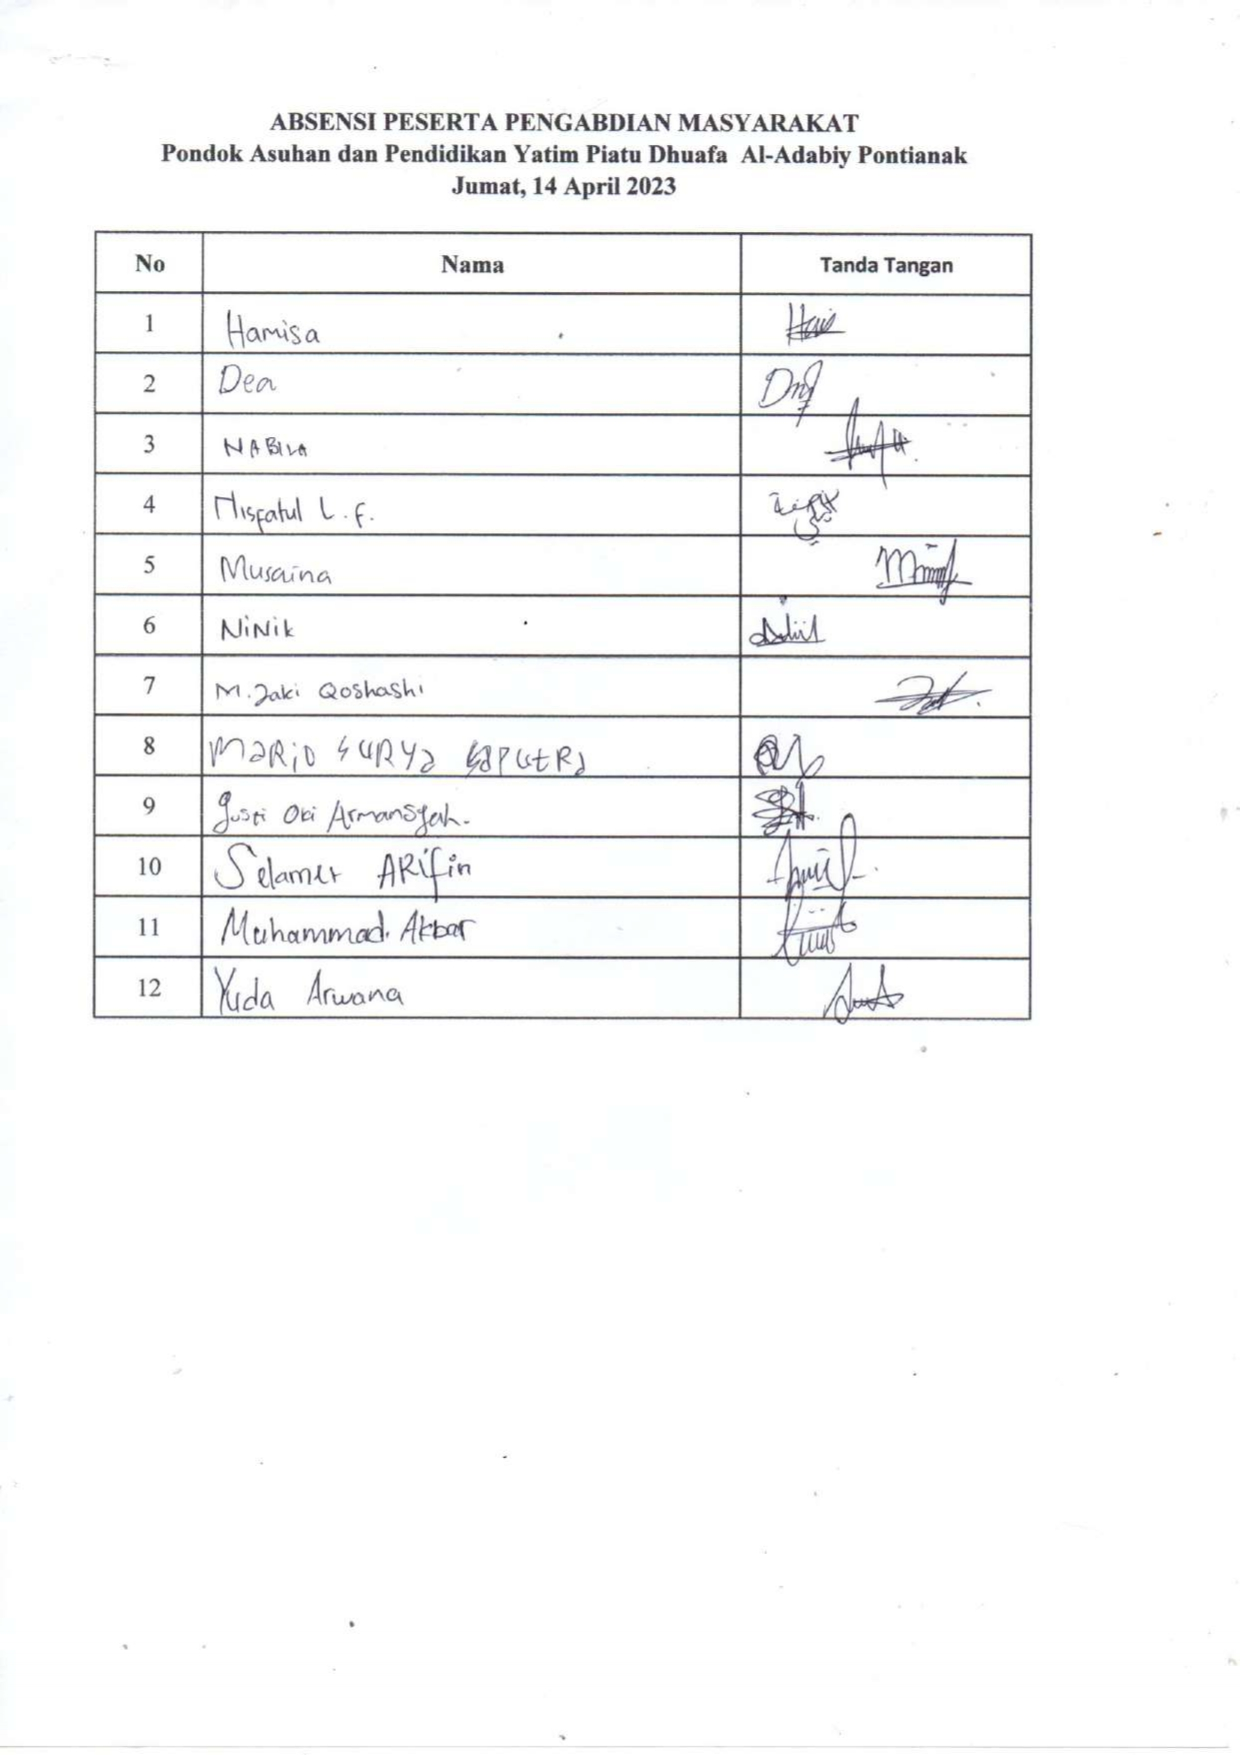 ABSENSI PESERTA PENGABDIAN MASYARAKAT
Pondok Asuhan dan Pendidikan Yatim Piatu Dhuafa Al-Adabiy Pontianak
Jumat, 14 April 2023
No Nama Tanda Tangan
1 Hamisa
2 Dea
3 NABILA
4 Misfatul L.F.
5 Musaina
6 NiNik
7 M. Jaki Qoshashi
8 MaRiO SURYa SaPUtRa
9 Gusti Oki Armansyah.
10 Selamet ARifin
11 Muhammad. Akbar
12 Yuda Arwana